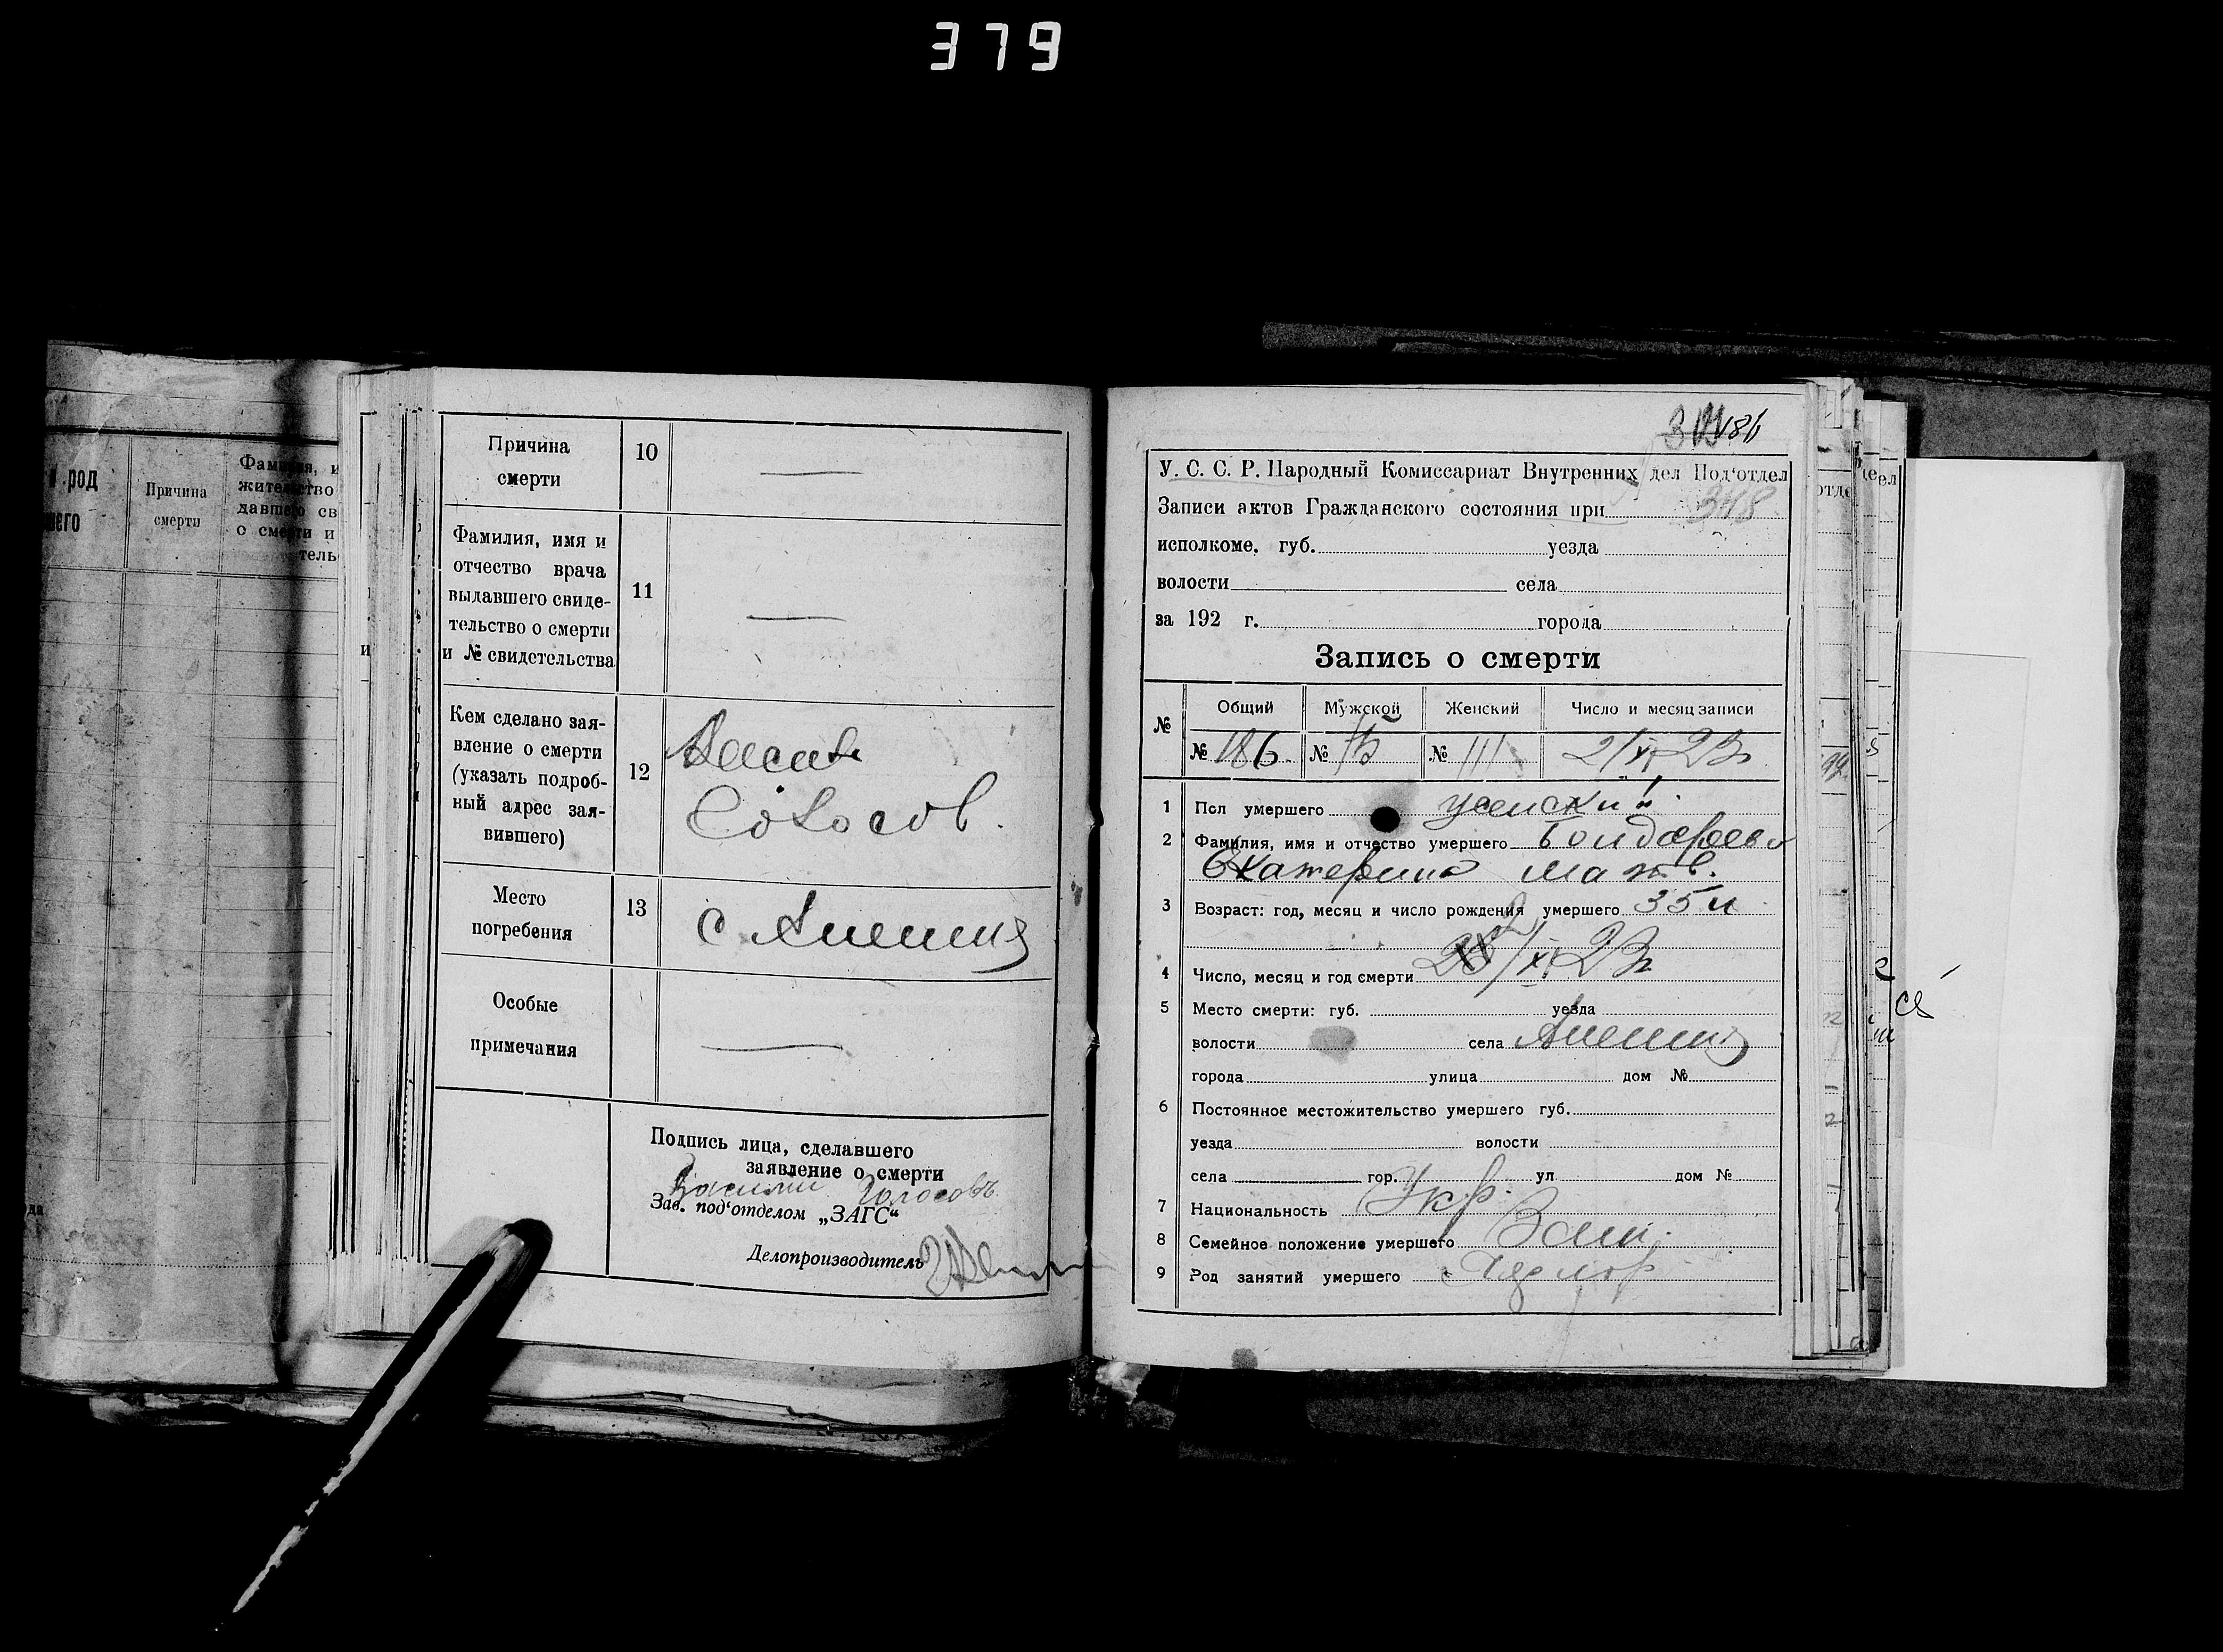 379
род
шего
Причина
смерти
Фамилия, и
жительство
давшего св
о смерти и
тель
и
Причина
смерти
10
Фамилия, имя и
отчество врача
выдавшего свиде-
тельство о смерти
и № свидетельства
11
Кем сделано зая-
вление о смерти
(указать подроб-
ный адрес зая-
вившего)
12
Место
погребения
13
с
Особые
примечания
Подпись лица, сделавшего
заявление о смерти
Голосовъ
Зав. под‘отделом „ЗАГС“
Делопроизводитель
186
У. С. С. Р. Народный Комиссариат Внутренних дел Под‘отдел
Записи актов Гражданского состояния при 348
исполкоме. губ. уезда
волости села
за 192 г. города
Запись о смерти
№ Общий Мужской Женский Число и месяц записи
№ 186. № 75 № 111 2/XI 23
1 Пол умершего женский
2 Фамилия, имя и отчество умершего Бондарева
Екатерина Матв.
3 Возраст: год, месяц и число рождения умершего 35 л
4 Число, месяц и год смерти 2/XI 23
5 Место смерти: губ. уезда
волости села
города улица дом №
6 Постоянное местожительство умершего губ.
уезда волости
села гор. ул дом №
7 Национальность Укр.
8 Семейное положение умершего Зам.
9 Род занятий умершего